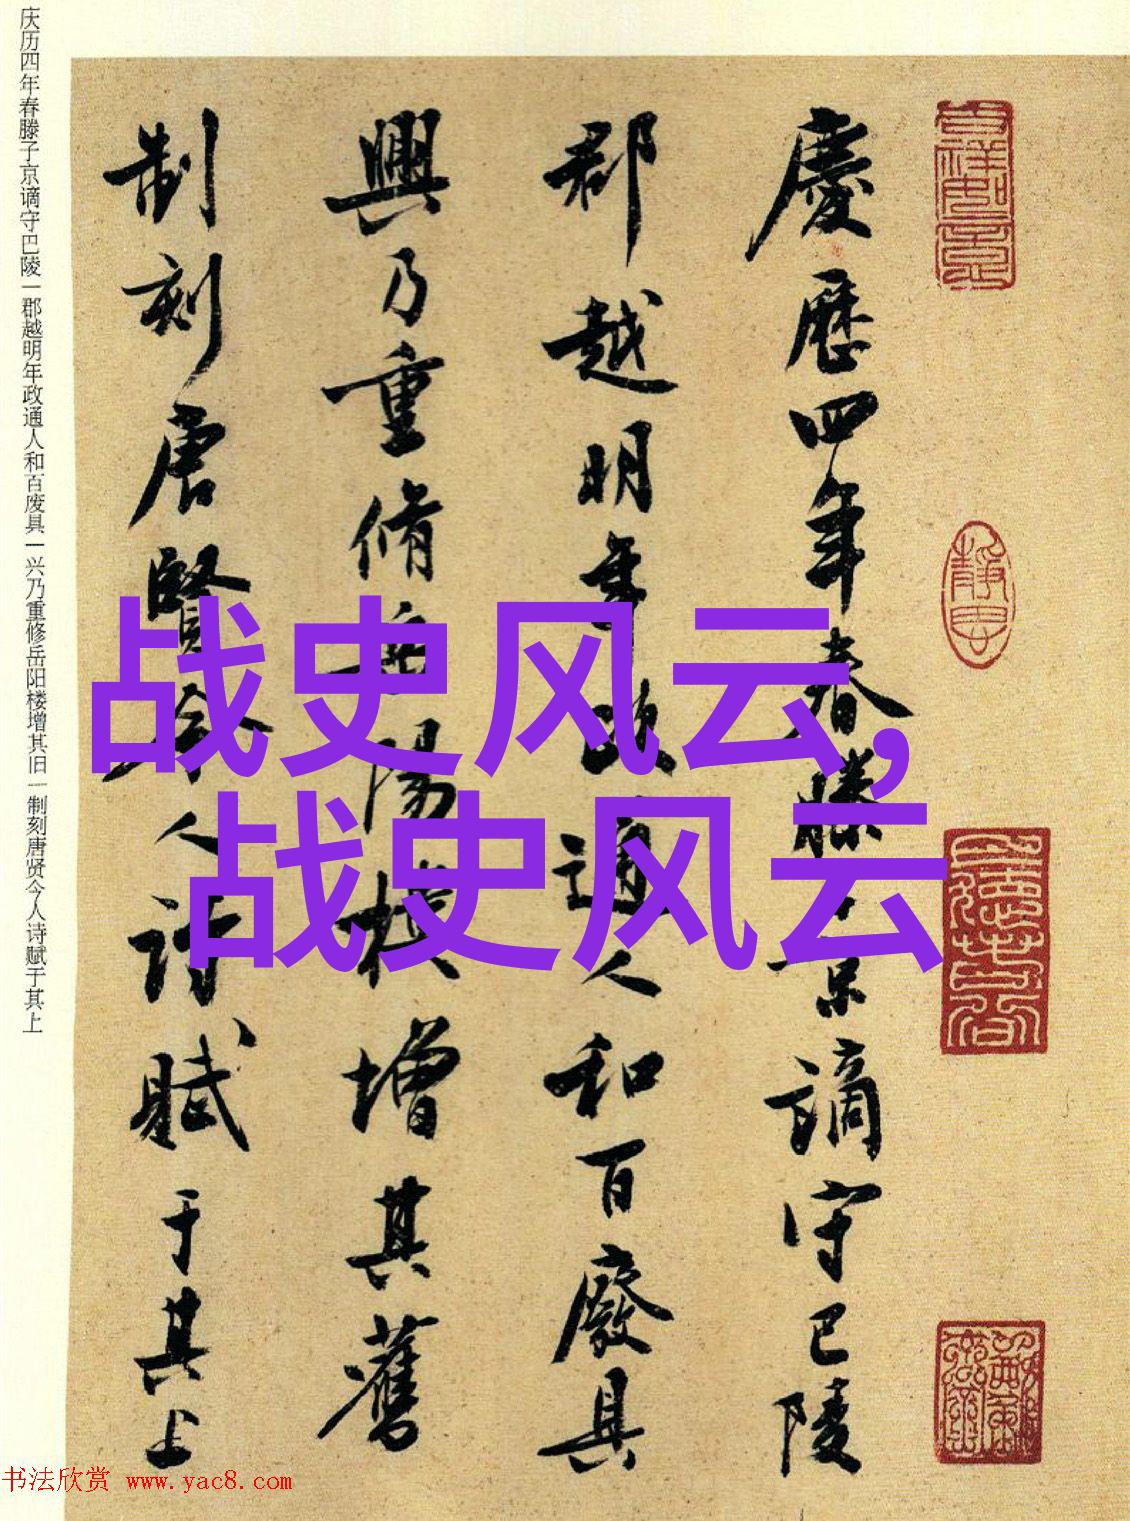 吉祥如意
慶歷四年春滕京謫守巴陵
郡越明年政通人和百廢具
興乃重脩岳陽樓增其舊
制刻唐賢今人詩賦于其上
庆历四年春滕子京谪守巴陵一郡越明年政通人和百废具一兴乃重修岳阳楼增其旧一制刻唐贤今人诗赋于其上
战史风云,
战史风云
书法欣赏 www.yac8.com